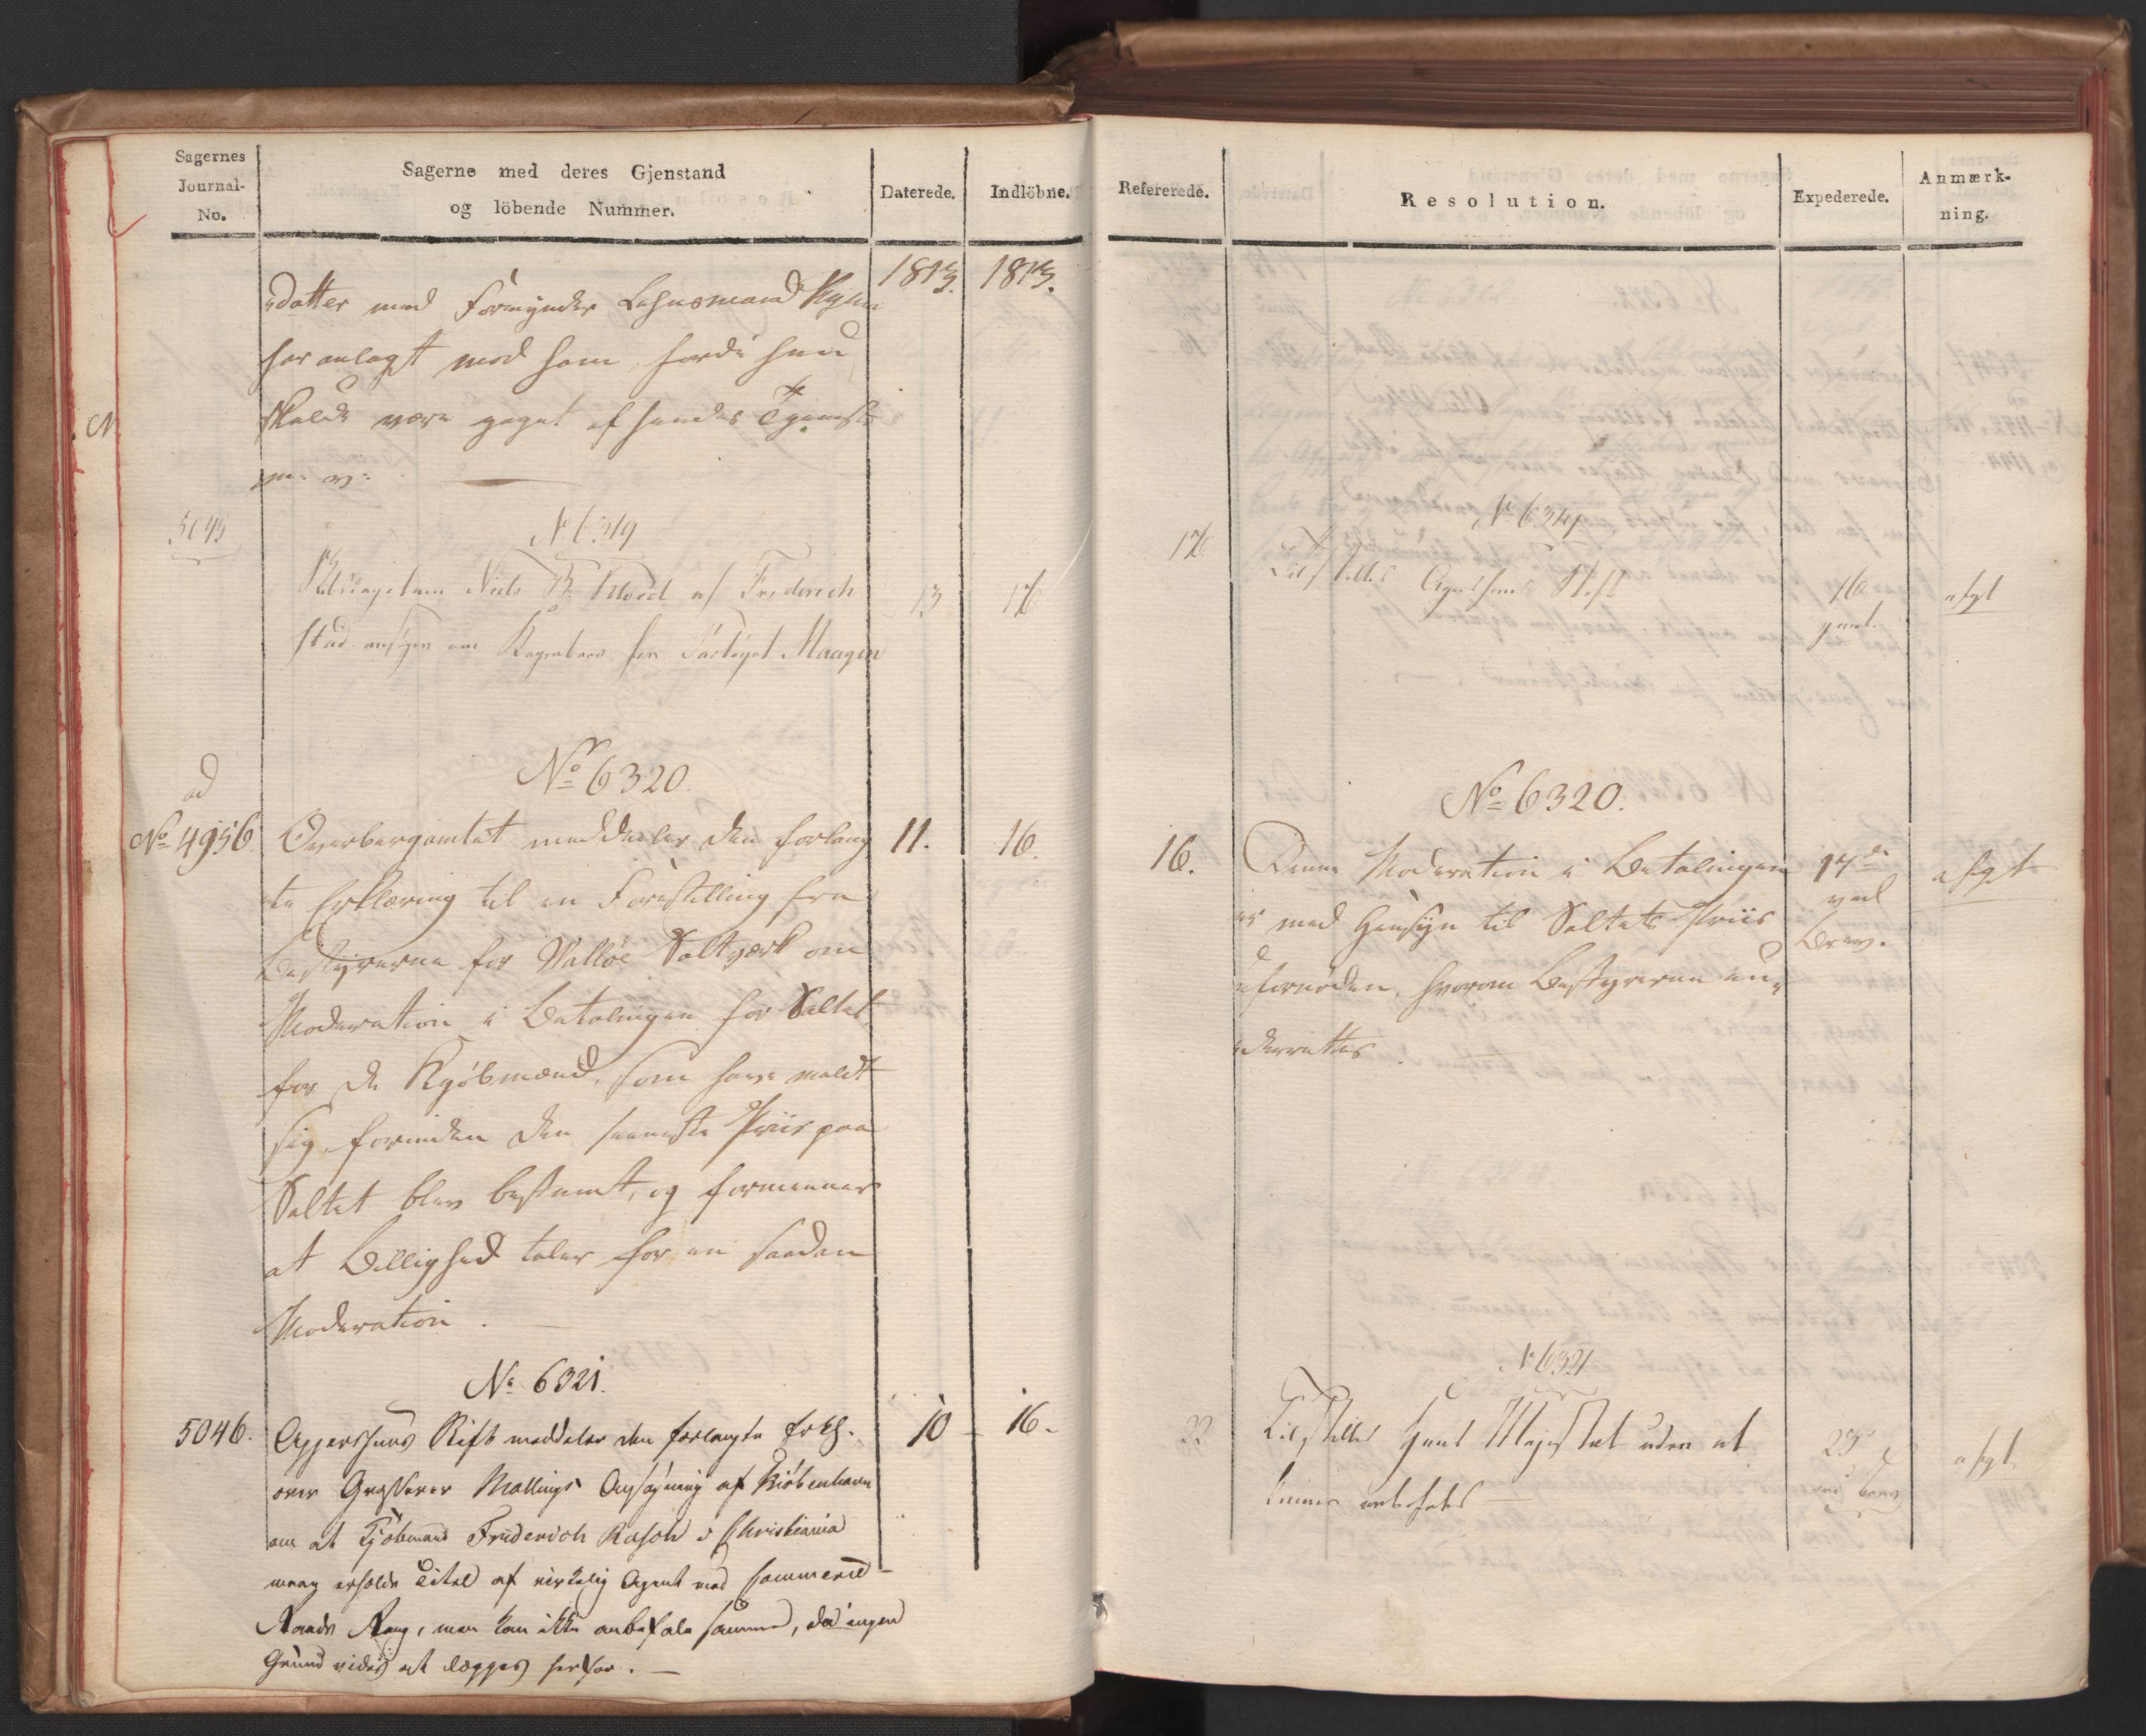 Sagernes
Journal-
No.
Sagerne med deres Gjenstand
og löbende Nummer.
Daterede.
Indlöbne.
1813. 1813.
datter med Formynder Lehnsmand
har anlagt mod ham, fordi hun
skulde være jaget af hendes Tjeneste
m: v:
5045
No 6319
Niels B. af Frederich
stad ansøger om for Fartøiet Maagen
13 16
ad
No 4956
No 6320.
Overbergamtet meddeeler den forlang
te Erklæring til en Forestilling fra
Bestyrerne for Walløe Saltværk om
Moderation i Betalingen for Saltet
for de Kjøbmænd, som have meldt
sig forinden den seeneste Priis paa
Saltet blev bestemt, og formeener
at Billighed taler for en saadan
Moderation.
11. 16.
No 6321.
5046.
Aggershuus Stift meddeler den forlangte Erkl.
over Grosserer Mallings Ansøgning af Kiøbenhavn
om at Kjøbmand Friderich Rasch i Christiania
maay erholde Titel af virkelig Agent med Commerce
Raads Rang, men kan ikke anbefale samme, da ingen
Grund vides at lægges herfor.
10 16.
Refererede.
Resolution.
Expederede.
Anmærk-
ning.
16
No 6319
Tilstilles Agershuus Stift
16
afgt
No 6320.
16.
Denne Moderation i Betalingen
er med Hensyn til Saltets Priis
ufornøden, hvorom Bestyrerne un-
derrettes.
17de
ved
Brev.
afgt
No 6321
22
Tilstilles Hans Majestæt uden at
kunne anbefales
23
ved Brev
afgt.